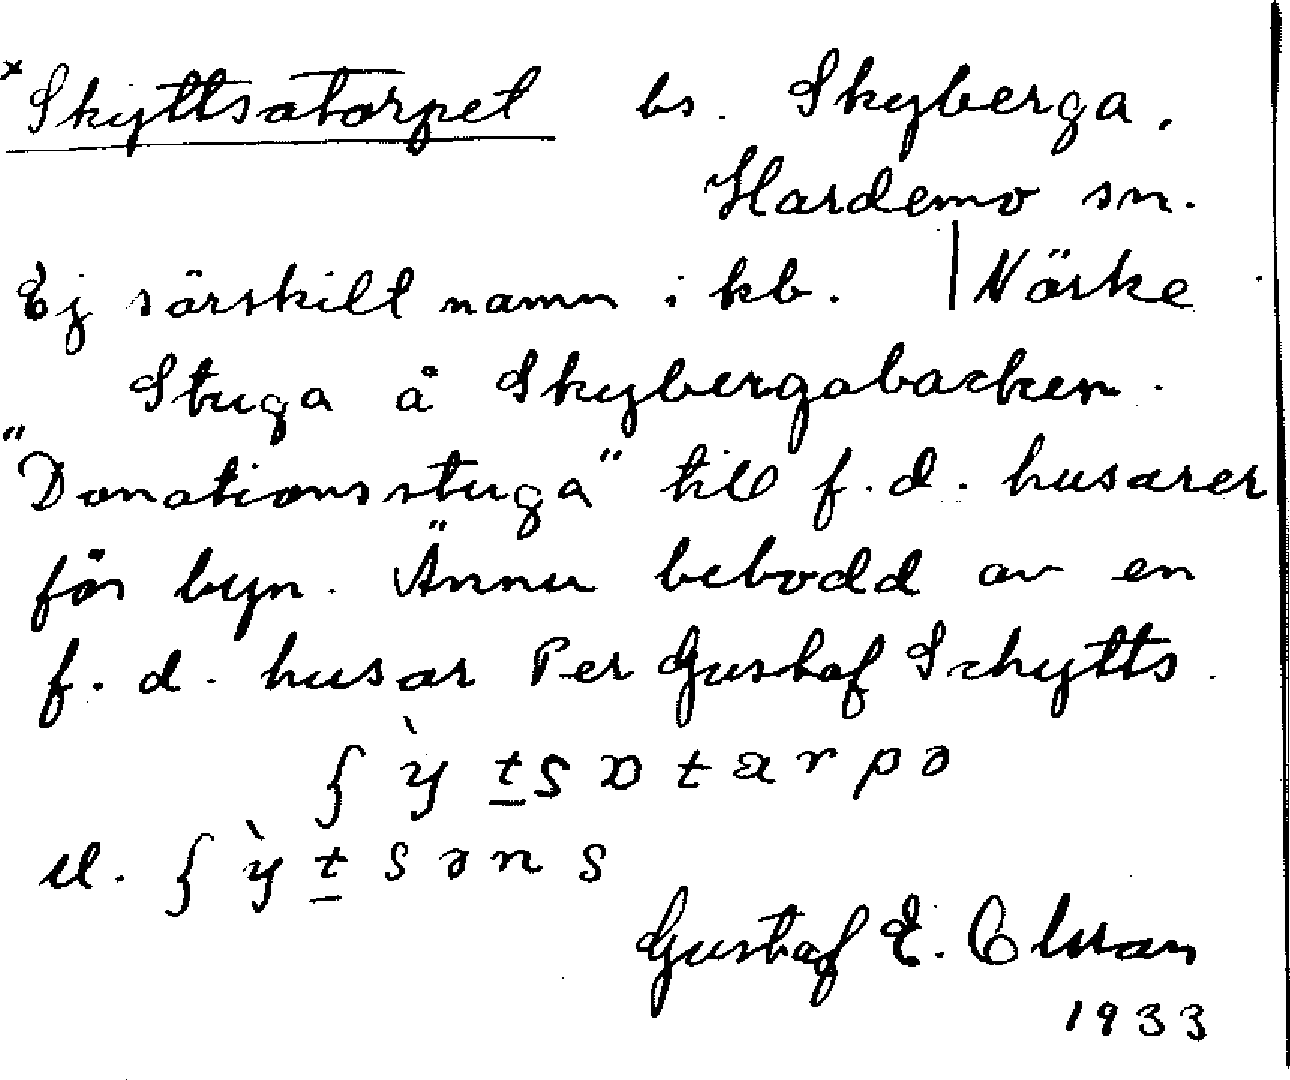 × Skyttsatorpet bs. Skyberga,
Hardemo sn.
Ej särskilt namn i kb. | Närke
Stuga å Skybergabacken.
"Donationsstuga" till f.d. husarer
för byn. Ännu bebodd av en
f.d. husar Per Gustaf Schytts.
ʃỳtsɒtarpə
el. ʃỳtsəns
Gustaf E.
1933